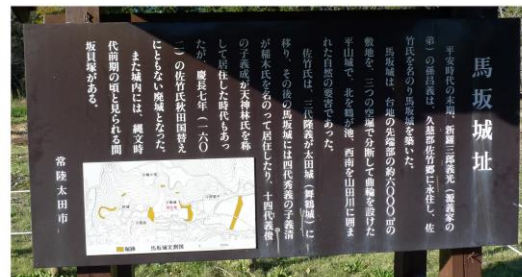 馬坂城址
平安時代の末期、新羅三郎義光(源義家の
弟)の孫昌義は、久慈郡佐竹郷に永住し、佐
竹氏を名のり馬坂城を築いた。
馬坂城は、台地の先端部の約六〇〇〇㎡の
敷地を、三つの空堀で分断して曲輪を設けた
平山城で、北を鶴ヶ池、西南を山田川に囲ま
れた自然の要害であった。
佐竹氏は、三代隆義が太田城(舞鶴城)に
移り、その後の馬坂城には四代秀義の子義清
が稲木氏を名のって居住したり、十四代義俊
の子義成が天神林氏を称
して居住した時代もあっ
たが、慶長七年(一六〇
二)の佐竹氏秋田国替え
にともない廃城となった。
また城内には、縄文時
代前期の頃と見られる間
坂貝塚がある。
常陸太田市
堀跡
馬坂城主割図